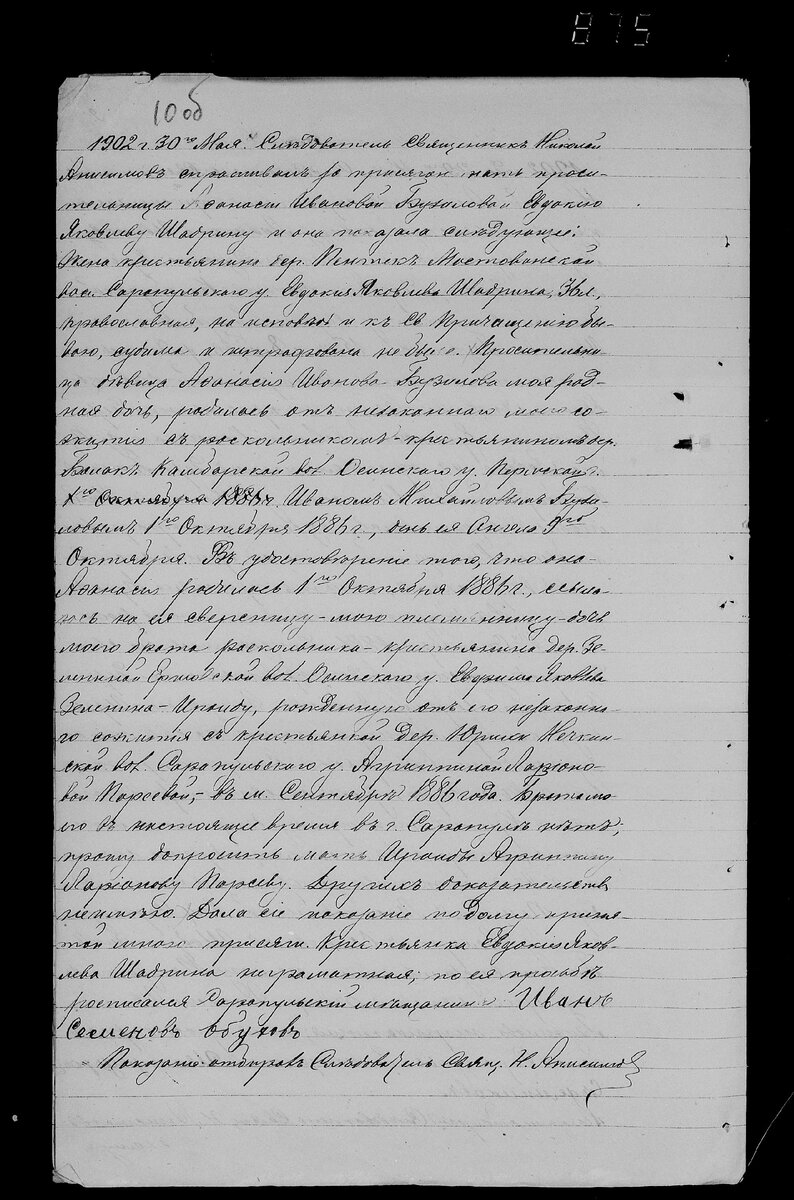 875
10 об
1902 г. 30го Мая. Слѣдователь Священникъ Николай
Анисимовъ спрашивалъ подъ присягой мать проси-
тельницы Афанасіи Ивановой Бузиловой Евдокію
Яковлеву Шадрину и она показала слѣдующее:
Жена крестьянина дер. Пентекъ Мостовинской
вол. Сарапульскаго у. Евдокія Яковлева Шадрина, 36 л.,
православная, на исповѣди и къ Св. Причащенію бы-
ваю, судима и штрафована не была. Просительни-
ца дѣвица Афанасія Иванова Бузилова моя род-
ная дочь, родилась отъ незаконнаго моего со-
житія съ раскольникомъ-крестьяниномъ дер.
Камбарской вол. Осинскаго у. Пермской г.
1го Октября 1886 г. Иваномъ Михайловымъ Бузи-
ловымъ 1го Октября 1886 г., день ея Ангела
Октября. Въ удостовѣреніе того, что она
Афанасія родилась 1го Октября 1886 г., ссыла-
юсь на ея сверстницу - мою племянницу - дочь
моего брата раскольника - крестьянина дер. Зе-
Ершовской вол. Осинскаго у. Евфима Яковлева
Зеленина - Ираиду, рожденную отъ его незаконна-
го сожитія съ крестьянкой дер. Юрики Нечкин-
ской вол. Сарапульскаго у. Агриппиной Ларіоно-
вой Парсевой, - въ м. Сентябрѣ 1886 года. Брата мо-
его въ настоящее время въ г. Сарапулѣ нѣтъ,
прошу допросить мать Ираиды Агриппину
Ларіонову Парсеву. Другихъ доказательствъ
не имѣю. Дала сіе показаніе по долгу приня-
той мною присяги. Крестьянка Евдокія Яков-
лева Шадрина неграмотная; по ея просьбѣ
росписался Сарапульскій мѣщанинъ Иванъ
Семеновъ Обуховъ
Показаніе отбиралъ Слѣдователь Свящ. Н. Анисимовъ